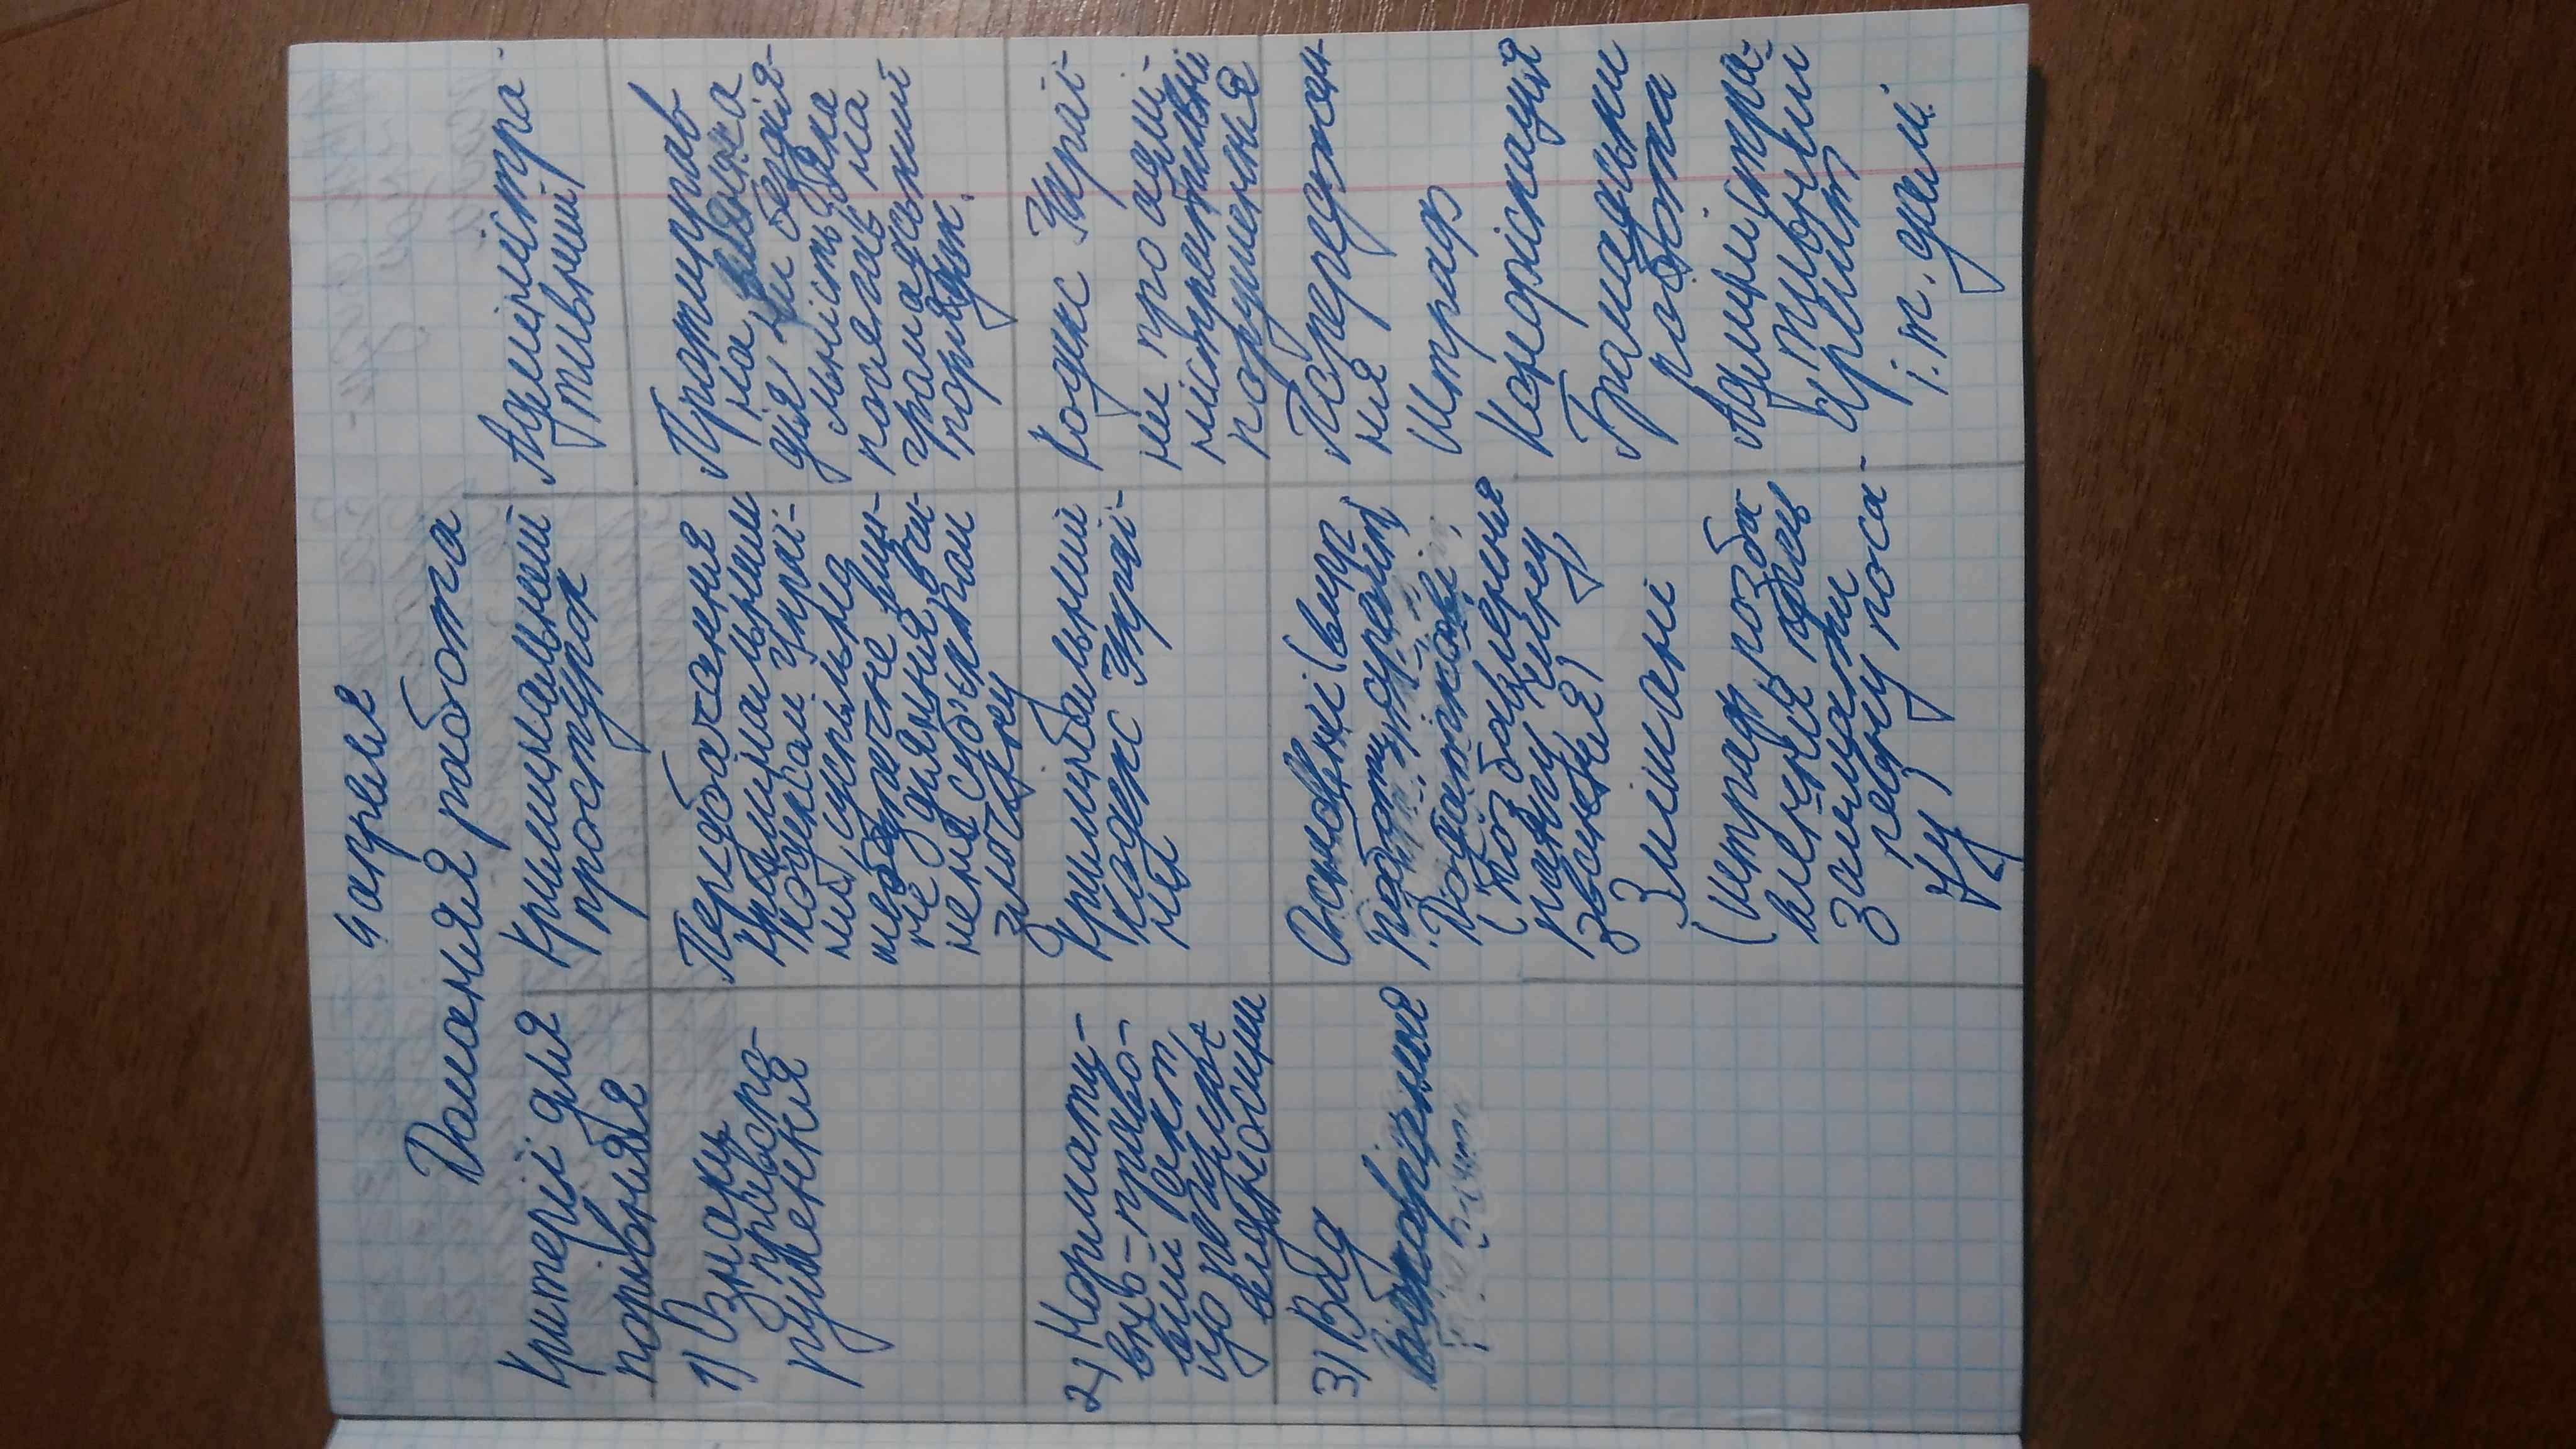 4 апреля
Домашняя работа
Критерії для
порівняня
Кримінальний
проступок
Адміністра-
тивний
1) Ознаки
правора-
рушення
Передбачення
кримінальним
кодексом Украї-
ни, суспільно
небезпечне вин-
не діяння вчи-
нення суб'єктом
злочину
Протиправ
на, винна
дія чи бездія-
льність, яка
посягає на
громадський
порядок.
2) Нормати-
вно-право-
вий акт,
що регулює
відносини
Кримінальний
кодекс Украї-
ни
Кодекс Украї-
ни про адмі-
ністративні
порушення
3) Вид
відповідальності
Основні (випр
роботи, арешт)
Додаткові
(позбавлення
рангу, чину,
звання)
Змішані
(штраф, позба
влення права
займати
певну поса-
ду)
Попереджен
ня
Штраф
Конфіскація
Громадьски
робота
Адміністра-
тивний
арешт
і т. дем.